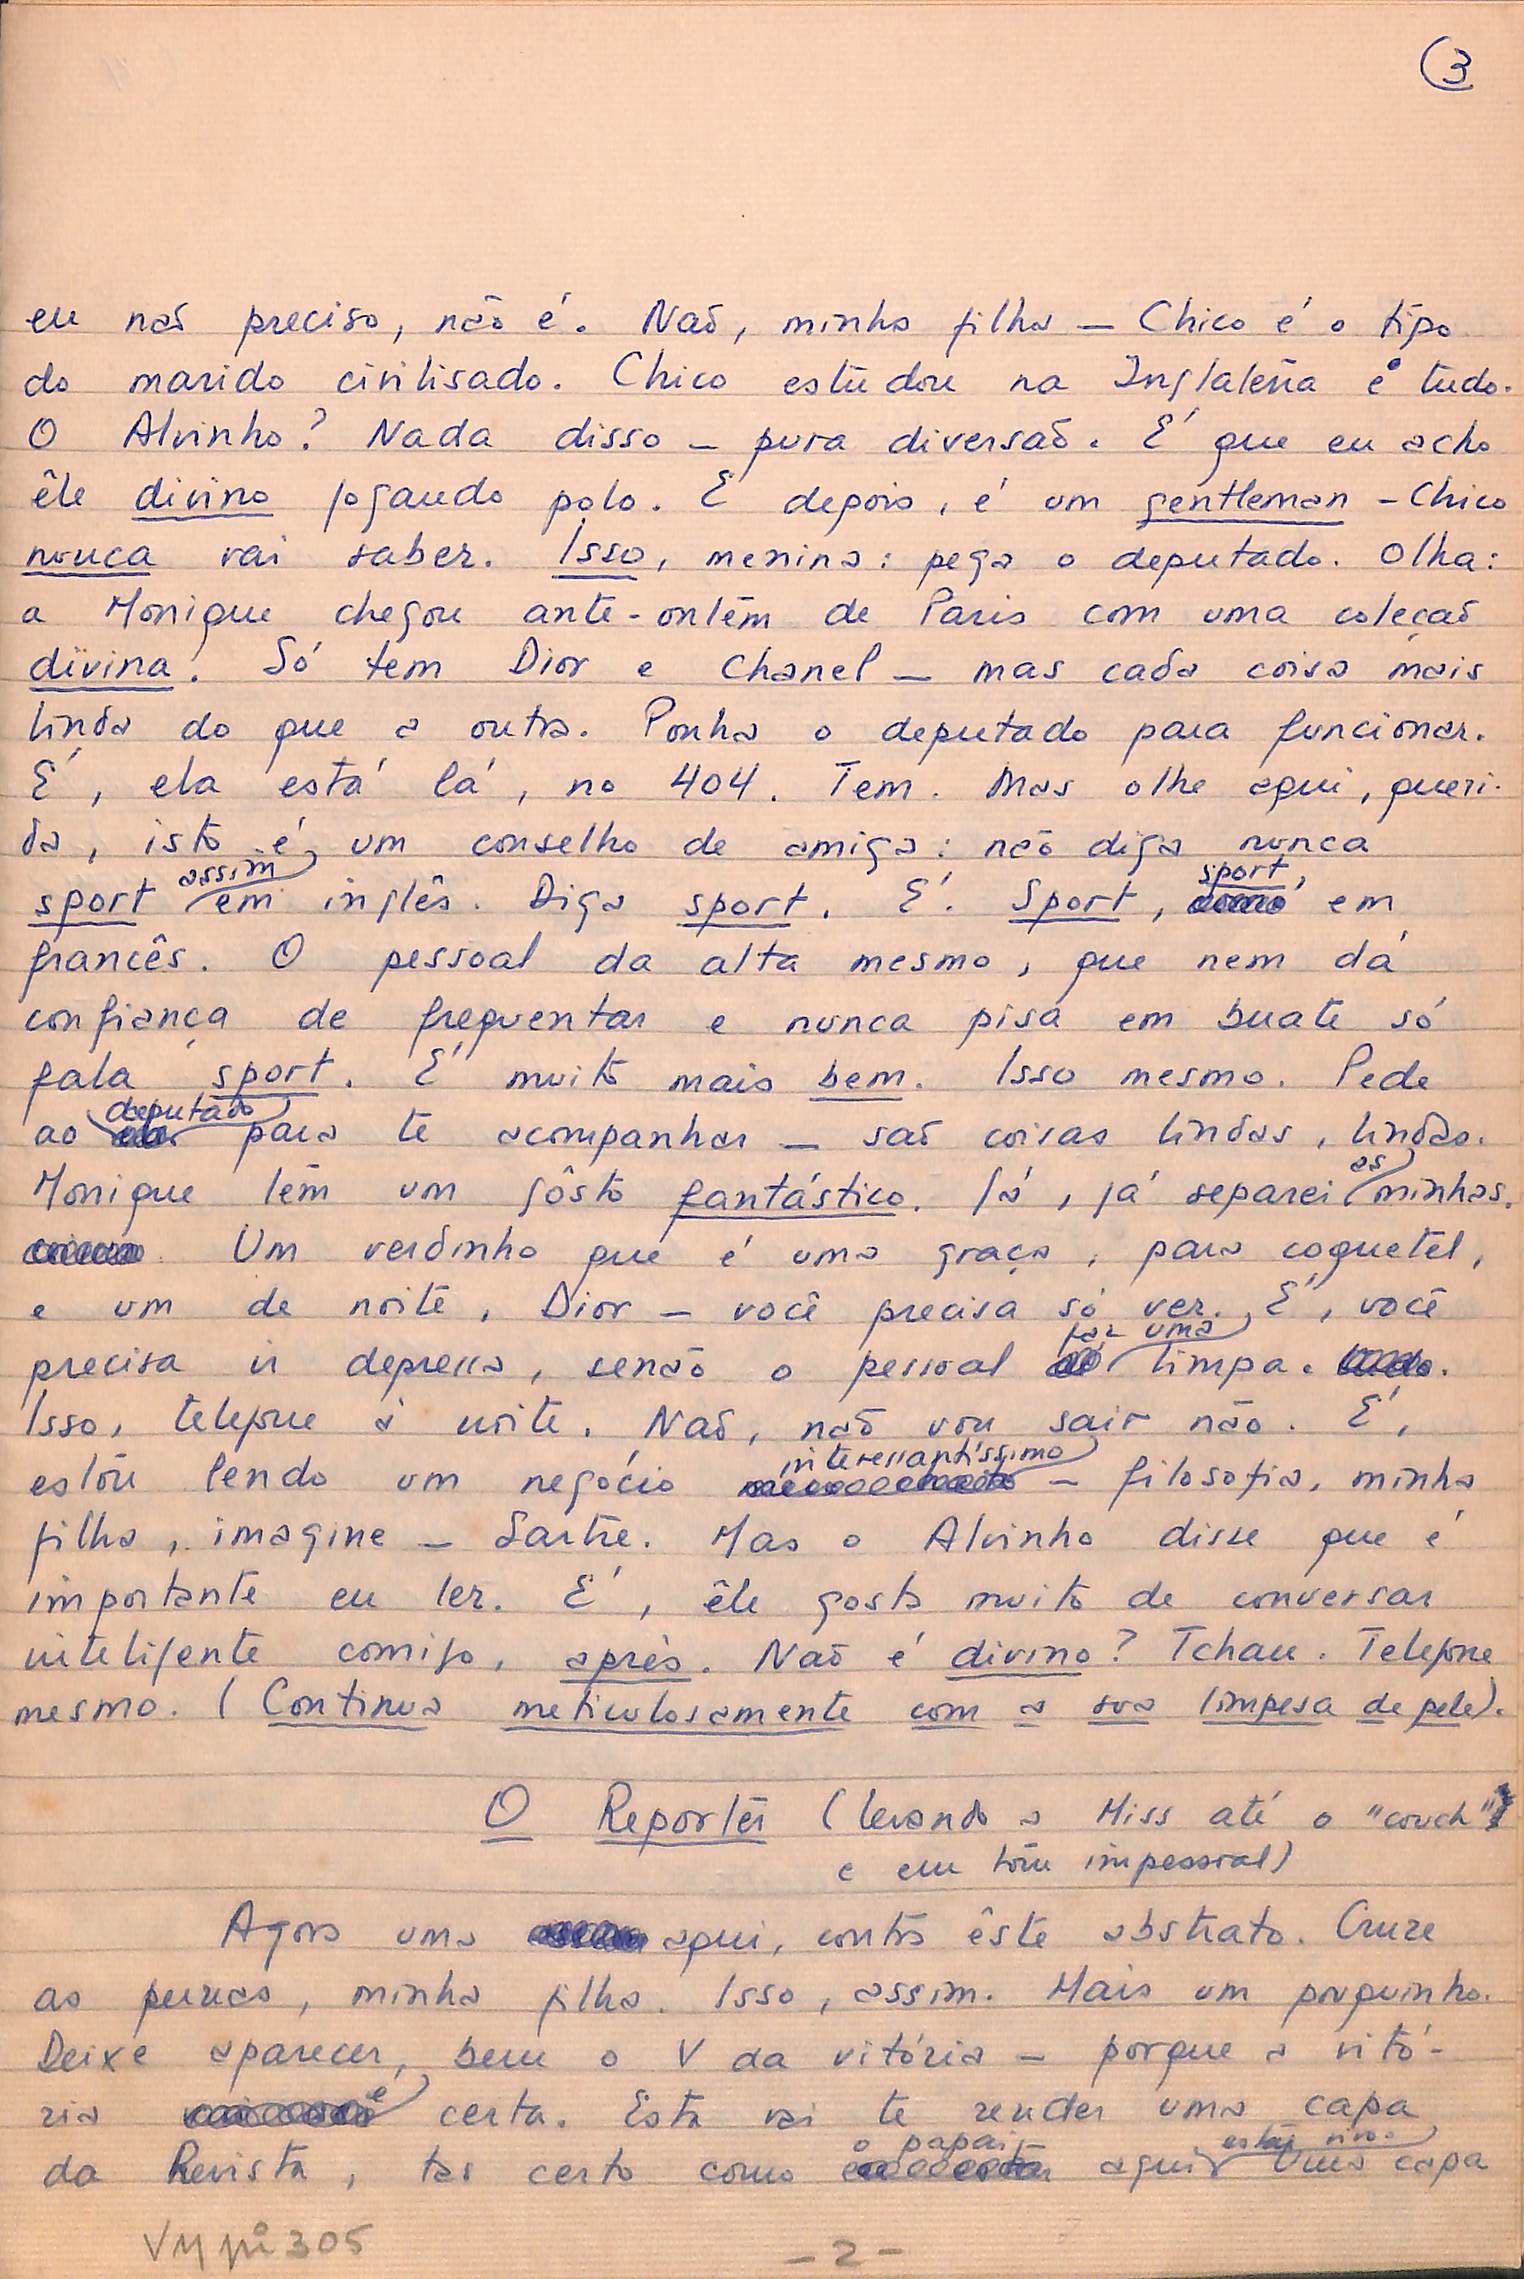 (3
eu não preciso, não é. Não, minha filha — Chico é o tipo
do marido civilisado. Chico estudou na Inglaterra e tudo.
O Alvinho? Nada disso — pura diversão. É que eu acho
êle divino jogando polo. E depois, é um gentleman — Chico
nunca vai saber. Isso, menina: pega o deputado. Olha:
a Monique chegou ante-ontem de Paris com uma coleção
divina! Só tem Dior e Chanel — mas cada coisa mais
linda do que a outra. Ponha o deputado para funcionar.
É, ela está lá, no 404. Tem. Mas olhe aqui, queri-
da, isto é um conselho de amiga: não diga nunca
sport assim em inglês. Diga sport. É. Sport, sport, em
francês. O pessoal da alta mesmo, que nem dá
confiança de frequentar e nunca pisa em buate só
fala sport. É muito mais bem. Isso mesmo. Pede
ao deputado para te acompanhar — são coisas lindas, lindas.
Monique tem um gôsto fantástico. Já, já separei as minhas.
Um verdinho que é uma graça, para coquetel,
e um de noite, Dior — você precisa só ver. É, você
precisa ir depressa, senão o pessoal faz uma limpa.
Isso, telefone à noite. Não, não vou sair não. É,
estou lendo um negócio interessantíssimo — filosofia, minha
filha, imagine — Sartre. Mas o Alvinho disse que é
importante eu ler. É, êle gosta muito de conversar
inteligente comigo, après. Não é divino? Tchau. Telefone
mesmo. (Continua meticulosamente com a sua limpesa de pele).
O Reporter (levando a Miss até o "couch"
e em tom impessoal)
Agora uma aqui, contra êste abstrato. Cruze
as pernas, minha filha. Isso, assim. Mais um pouquinho.
Deixe aparecer bem o V da vitória — porque a vitó-
ria é certa. Esta vai te render uma capa
da Revista, tão certo como o papai aqui estar vivo. Uma capa
305
- 2 -